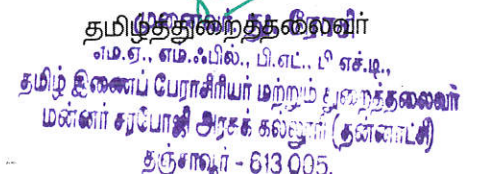 தமிழ்த்துறைத்தலைவர்
முனைவர்
எம.ஏ., எம.ஃபில்., பி.எட்., பி எச்.டி.,
தமிழ் இணைப் பேராசிரியர் மற்றும் துறைத்தலைவர்
மன்னர் சரபோஜி அரசுக் கல்லூரி (தன்னாட்சி)
தஞ்சாவூர் - 613 005.